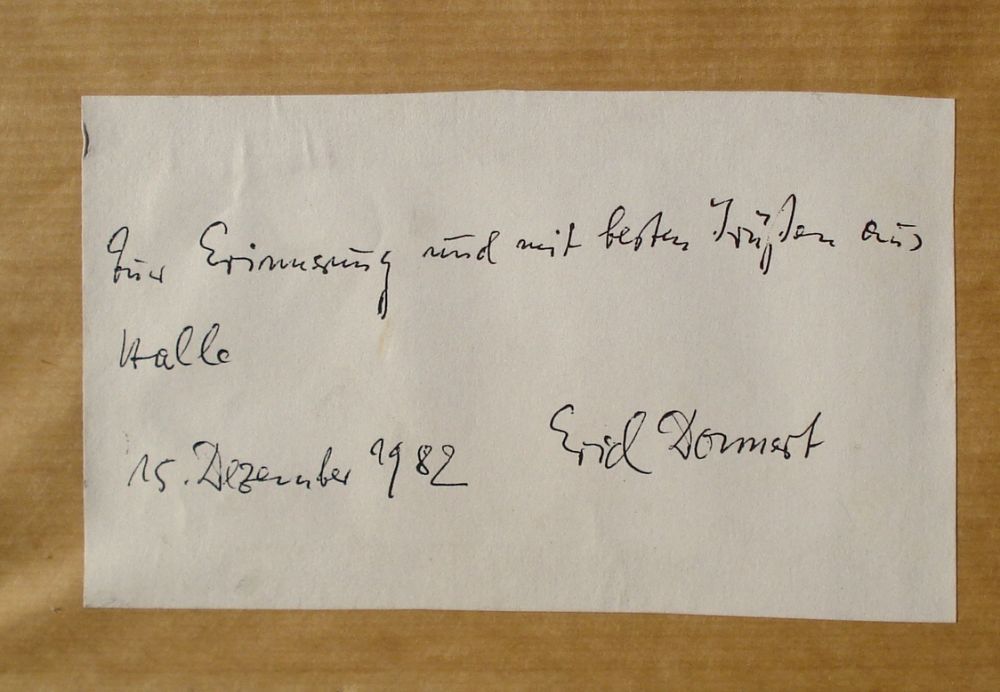 Zur Erinnerung und mit besten Grüßen aus
Halle
15. Dezember 1982 Erich